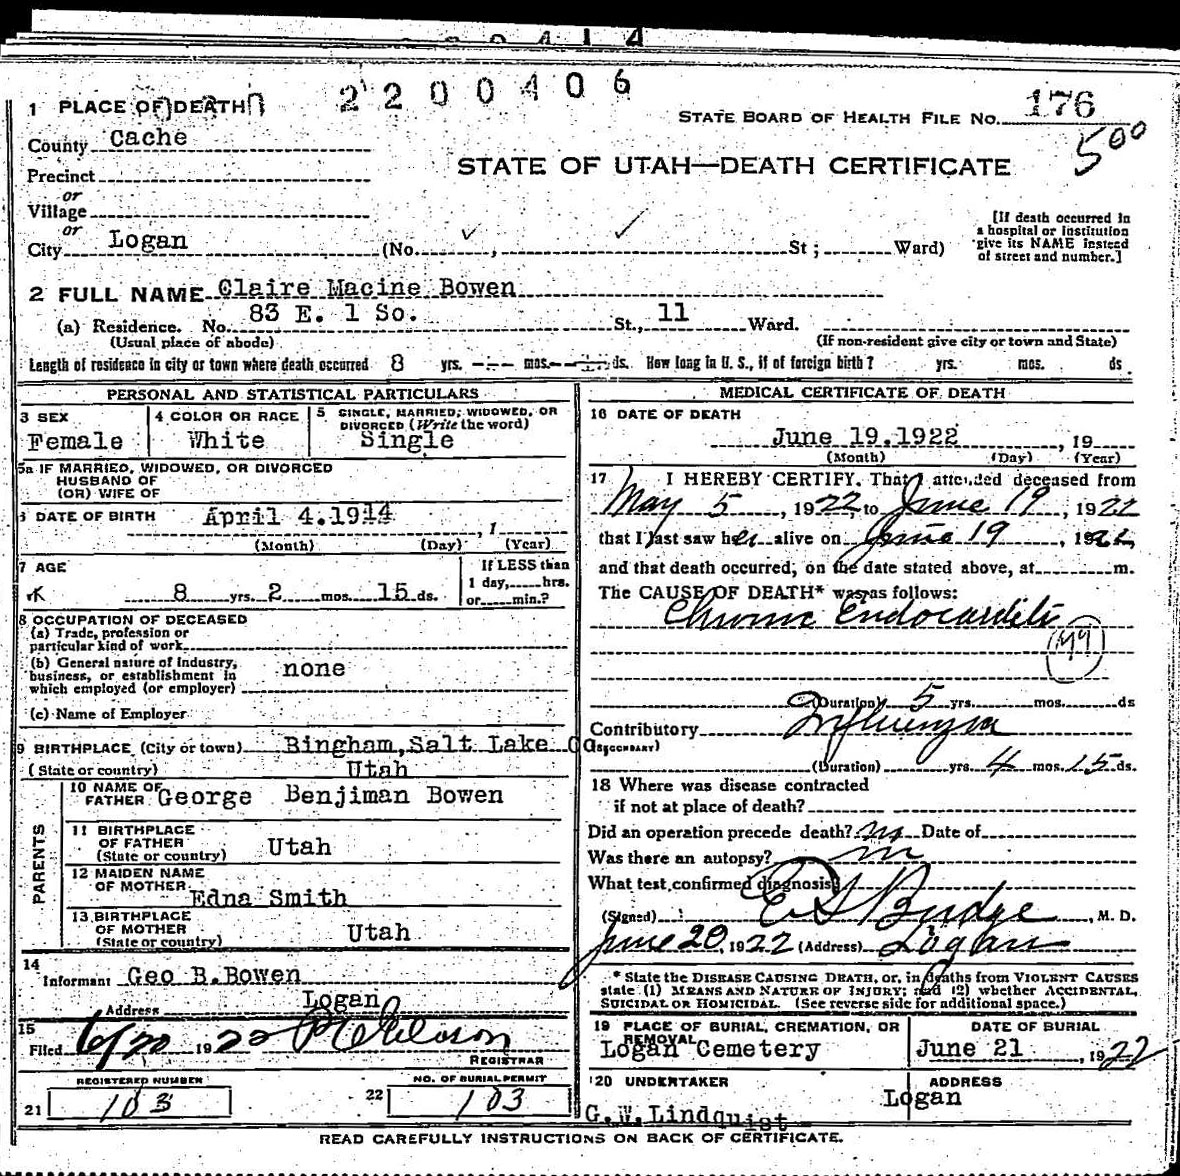 2200406
1 PLACE OF DEATH
STATE BOARD OF HEALTH FILE NO. 176
County Cache
500
STATE OF UTAH—DEATH CERTIFICATE
Precinct
or
Village
or
City Logan (No. , St ; Ward)
[If death occurred in
a hospital or institution
give its NAME instead
of street and number.]
2 FULL NAME Claire Macine Bowen
(a) Residence. No. 83 E. 1 So. St., 11 Ward.
(Usual place of abode) (If non-resident give city or town and State)
Length of residence in city or town where death occurred 8 yrs. mos. ds. How long in U. S., if of foreign birth? yrs. mos. ds.
PERSONAL AND STATISTICAL PARTICULARS
3 SEX
Female
4 COLOR OR RACE
White
5 SINGLE, MARRIED, WIDOWED, OR
DIVORCED (Write the word)
Single
5a IF MARRIED, WIDOWED, OR DIVORCED
HUSBAND OF
(OR) WIFE OF
6 DATE OF BIRTH April 4.1914 , 1
(Month) (Day) (Year)
7 AGE
8 yrs. 2 mos. 15 ds.
If LESS than
1 day, hrs.
or min.?
8 OCCUPATION OF DECEASED
(a) Trade, profession or
particular kind of work
(b) General nature of industry,
business, or establishment in
which employed (or employer)
none
(c) Name of Employer
9 BIRTHPLACE (City or town) Bingham, Salt Lake Co
(State or country) Utah
PARENTS
10 NAME OF
FATHER George Benjiman Bowen
11 BIRTHPLACE
OF FATHER
(State or country) Utah
12 MAIDEN NAME
OF MOTHER
Edna Smith
13 BIRTHPLACE
OF MOTHER
(State or country) Utah
14
Informant Geo B.Bowen
Address Logan
15
Filed 6/20 1922
REGISTRAR
REGISTERED NUMBER
21 103
NO. OF BURIAL PERMIT
22 103
MEDICAL CERTIFICATE OF DEATH
16 DATE OF DEATH
June 19.1922 , 19
(Month) (Day) (Year)
17 I HEREBY CERTIFY. That I attended deceased from
May 5 , 1922, to June 19 , 1922
that I last saw her alive on June 19 , 1922
and that death occurred, on the date stated above, at m.
The CAUSE OF DEATH* was as follows:
Chronic Endocarditis
(Duration) 5 yrs. mos. ds
Contributory Influenza
(SECONDARY)
(Duration) yrs. 4 mos. 15 ds.
18 Where was disease contracted
if not at place of death?
Did an operation precede death? no Date of
Was there an autopsy? no
What test confirmed diagnosis?
(Signed) E S Budge , M. D.
June 20, 1922 (Address) Logan
* State the DISEASE CAUSING DEATH, or, in deaths from VIOLENT CAUSES
state (1) MEANS AND NATURE OF INJURY; and (2) whether ACCIDENTAL,
SUICIDAL OR HOMICIDAL. (See reverse side for additional space.)
19 PLACE OF BURIAL, CREMATION, OR
REMOVAL
Logan Cemetery
DATE OF BURIAL
June 21 , 1922
20 UNDERTAKER
G.W.Lindquist
ADDRESS
Logan
READ CAREFULLY INSTRUCTIONS ON BACK OF CERTIFICATE.